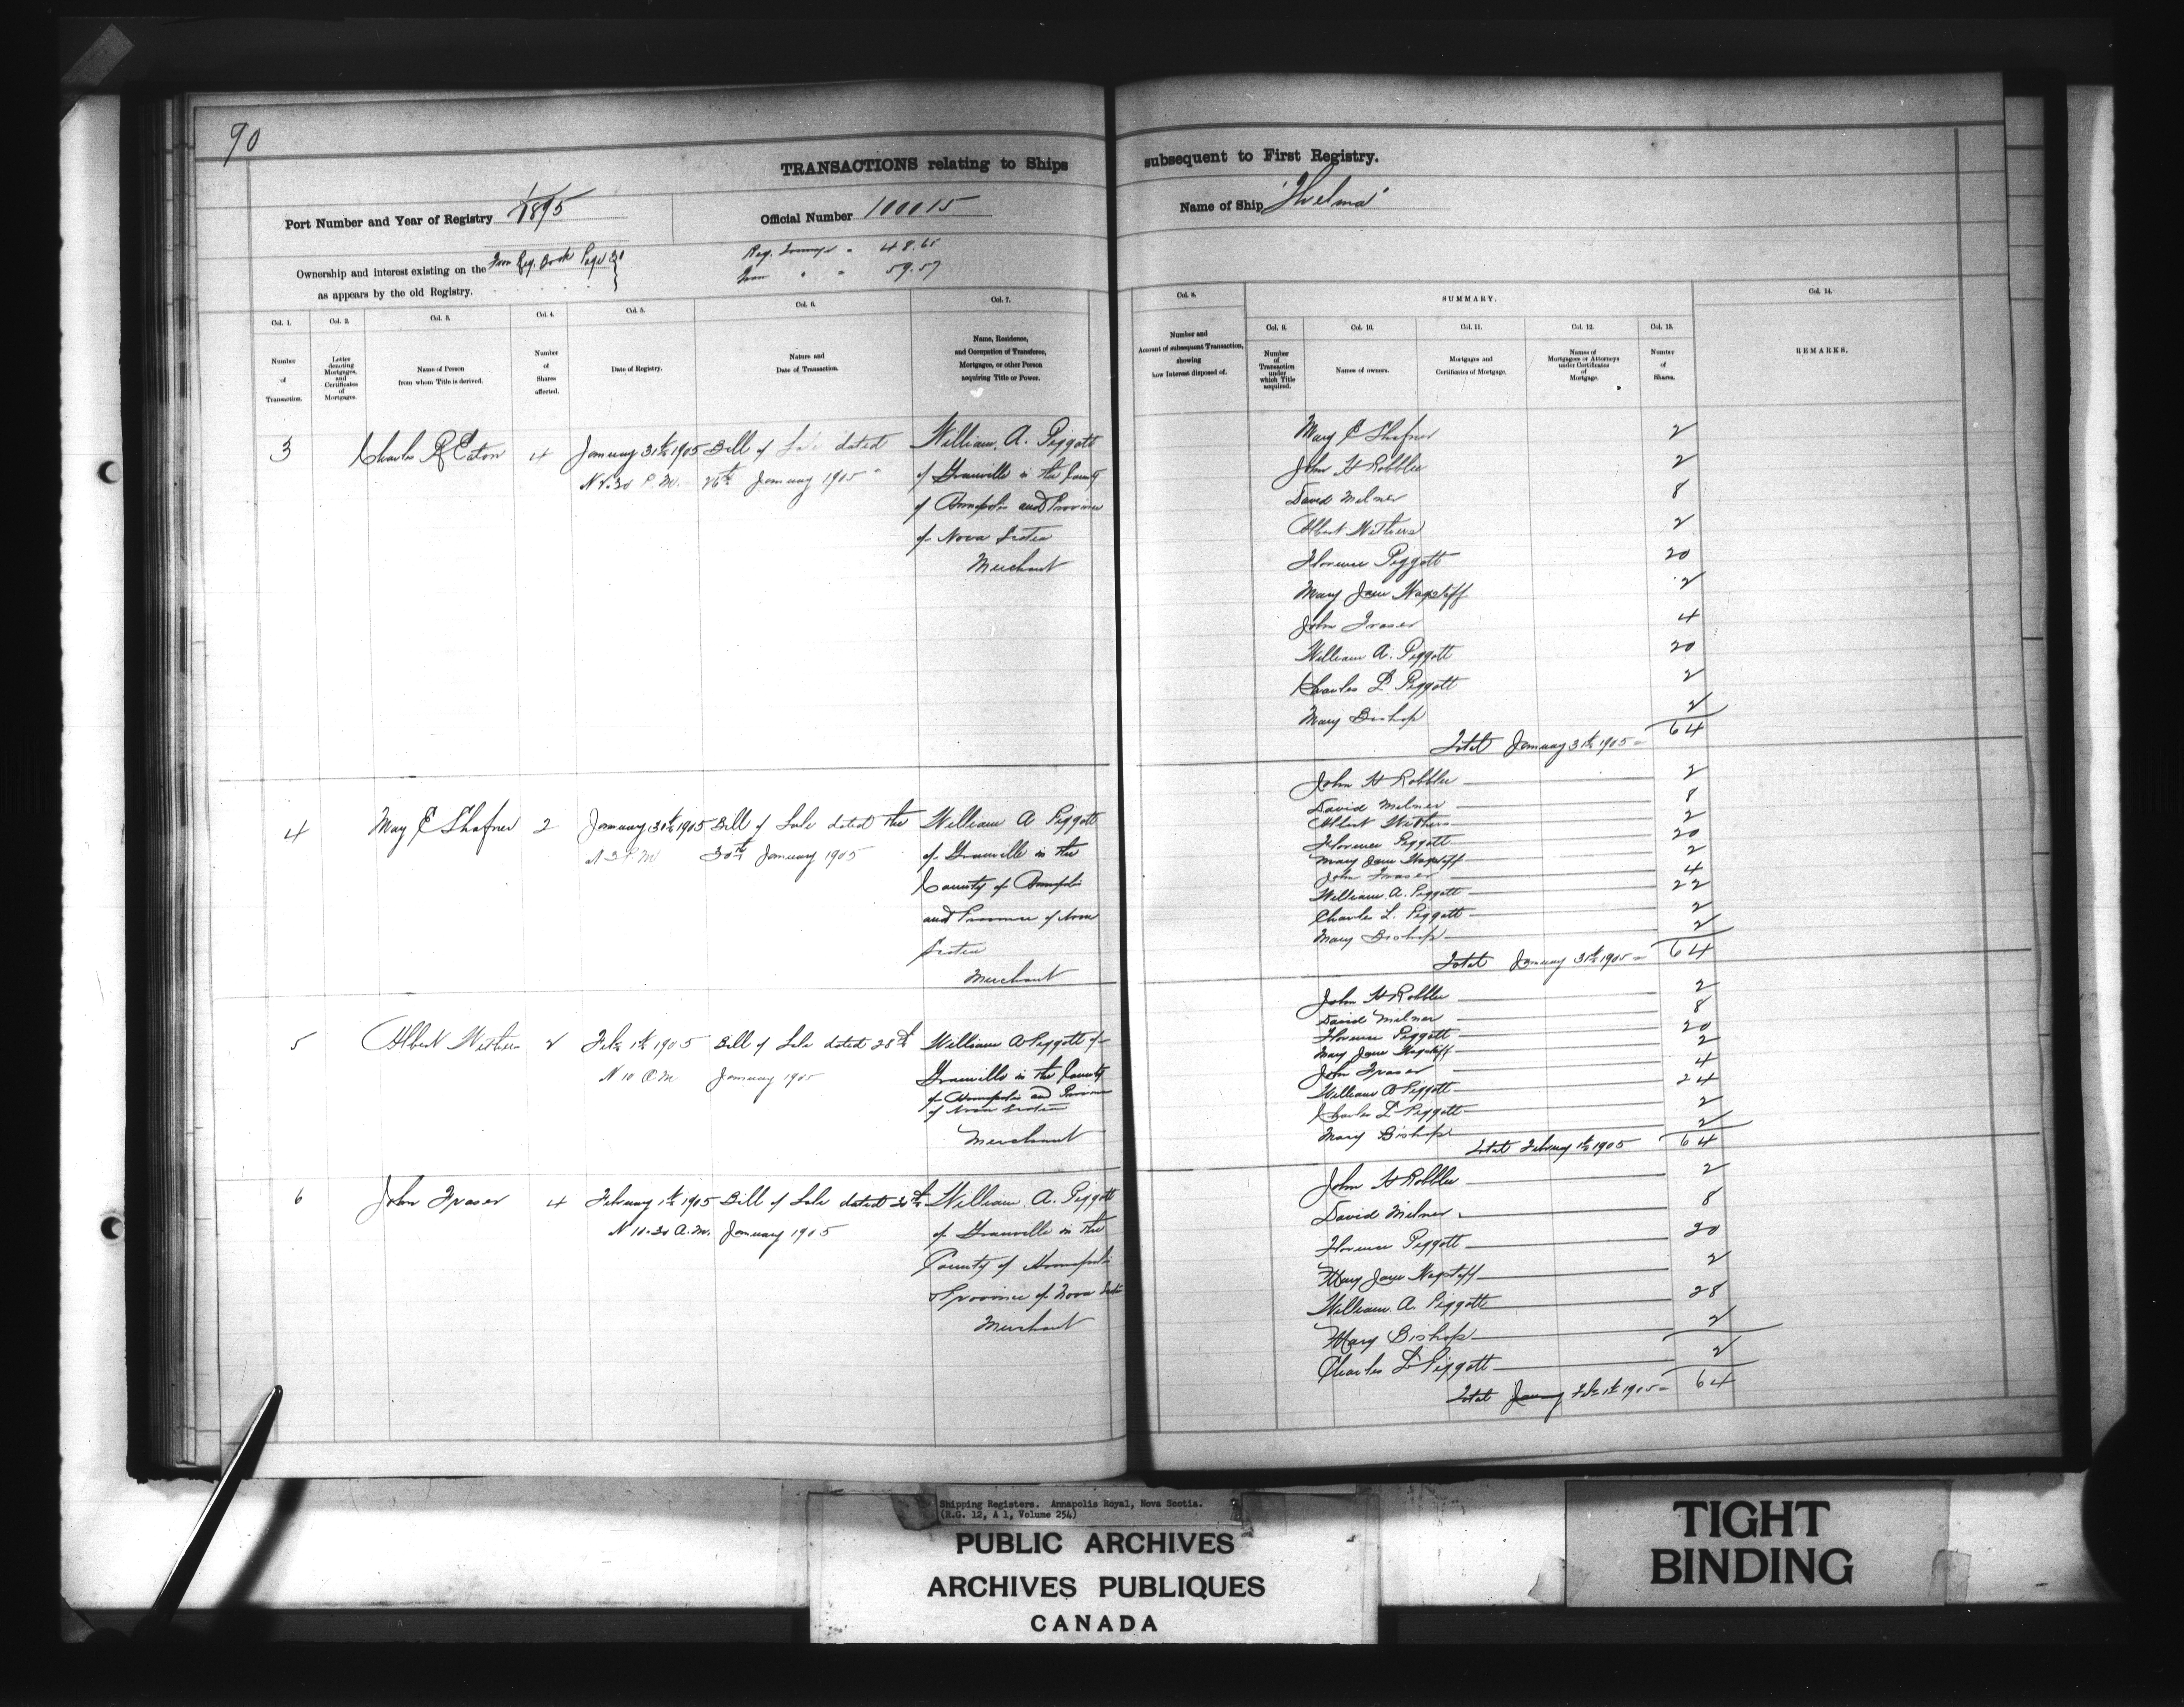 90
TRANSACTIONS relating to Ships subsequent to First Registry.
Port Number and Year of Registry 1/1895
Official Number 100015
Name of Ship "Thelma"
Ownership and interest existing on the From Reg. Book Page 30
as appears by the old Registry.
Reg. Tonnage " 48.65
" " 59.57
Col. 1.
Number
of
Transaction.
Col. 2.
Letter
denoting
Mortgages,
and
Certificates
of
Mortgages.
Col. 3.
Name of Person
from whom Title is derived.
Col. 4.
Number
of
Shares
affected.
Col. 5.
Date of Registry.
Col. 6.
Nature and
Date of Transaction.
Col. 7.
Name, Residence,
and Occupation of Transferee,
Mortgagee, or other Person
acquiring Title or Power.
Col. 8.
Number and
Amount of subsequent Transaction,
showing
how Interest disposed of.
SUMMARY.
Col. 9.
Number
of
Transaction
under
which Title
acquired.
Col. 10.
Names of owners.
Col. 11.
Mortgages and
Certificates of Mortgage.
Col. 12.
Names of
Mortgagees or Attorneys
under Certificates
of
Mortgage.
Col. 13.
Number
of
Shares.
Col. 14.
REMARKS.
3 Charles R Eaton 4 January 31st 1905 Bill of Sale dated William A. Piggott
P.M. 26th January 1905 of Granville in the County
of Annapolis and Province
of Nova Scotia
Merchant
Mary E Shafner 2
John H Robblee 2
David Milner 8
Albert Withers 2
Florence Piggott 20
Mary Jane Wagstaff 2
John Fraser 4
William A. Piggott 20
Charles L Piggott 2
Mary Bishop 2
Total January 31st 1905 = 64
4 May E Shafner 2 January 31st 1905 Bill of Sale dated the William A Piggott
At 3 P.M 30th January 1905 of Granville in the
County of Annapolis
and Province of Nova
Scotia
Merchant
John H Robblee 2
David Milner 8
Albert Withers 2
Florence Piggott 20
Mary Jane Wagstaff 2
John Fraser 4
William A. Piggott 22
Charles L. Piggott 2
Mary Bishop 2
Total January 31st 1905 = 64
5 Albert Withers 2 Feb 1st 1905 Bill of Sale dated 28th William A Piggott of
At 10 A.M January 1905 Granville in the County
of Annapolis and Province
of Nova Scotia
Merchant
John H Robblee 2
David Milner 8
Florence Piggott 20
Mary Jane Wagstaff 2
John Fraser 4
William A Piggott 24
Charles L Piggott 2
Mary Bishop 2
Total February 1st 1905 64
6 John Fraser 4 February 1st 1905 Bill of Sale dated William A. Piggott
At 10.30 A.M. January 1905 of Granville in the
County of Annapolis
Province of Nova Scotia
Merchant
John H Robblee 2
David Milner 8
Florence Piggott 20
Mary Jane Wagstaff 2
William A. Piggott 28
Mary Bishop 2
Charles L Piggott 2
Total January Feb 1st 1905 = 64
Shipping Registers. Annapolis Royal, Nova Scotia.
(R.G. 12, A 1, Volume 254)
PUBLIC ARCHIVES
ARCHIVES PUBLIQUES
CANADA
TIGHT
BINDING